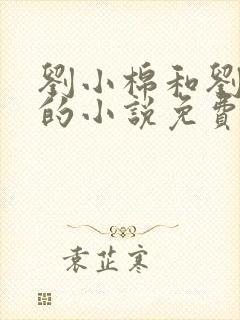 劉小棉和劉
的小說免費
袁芷寒